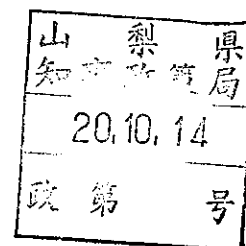 山梨県
知事政策局
20.10.14
政第 号